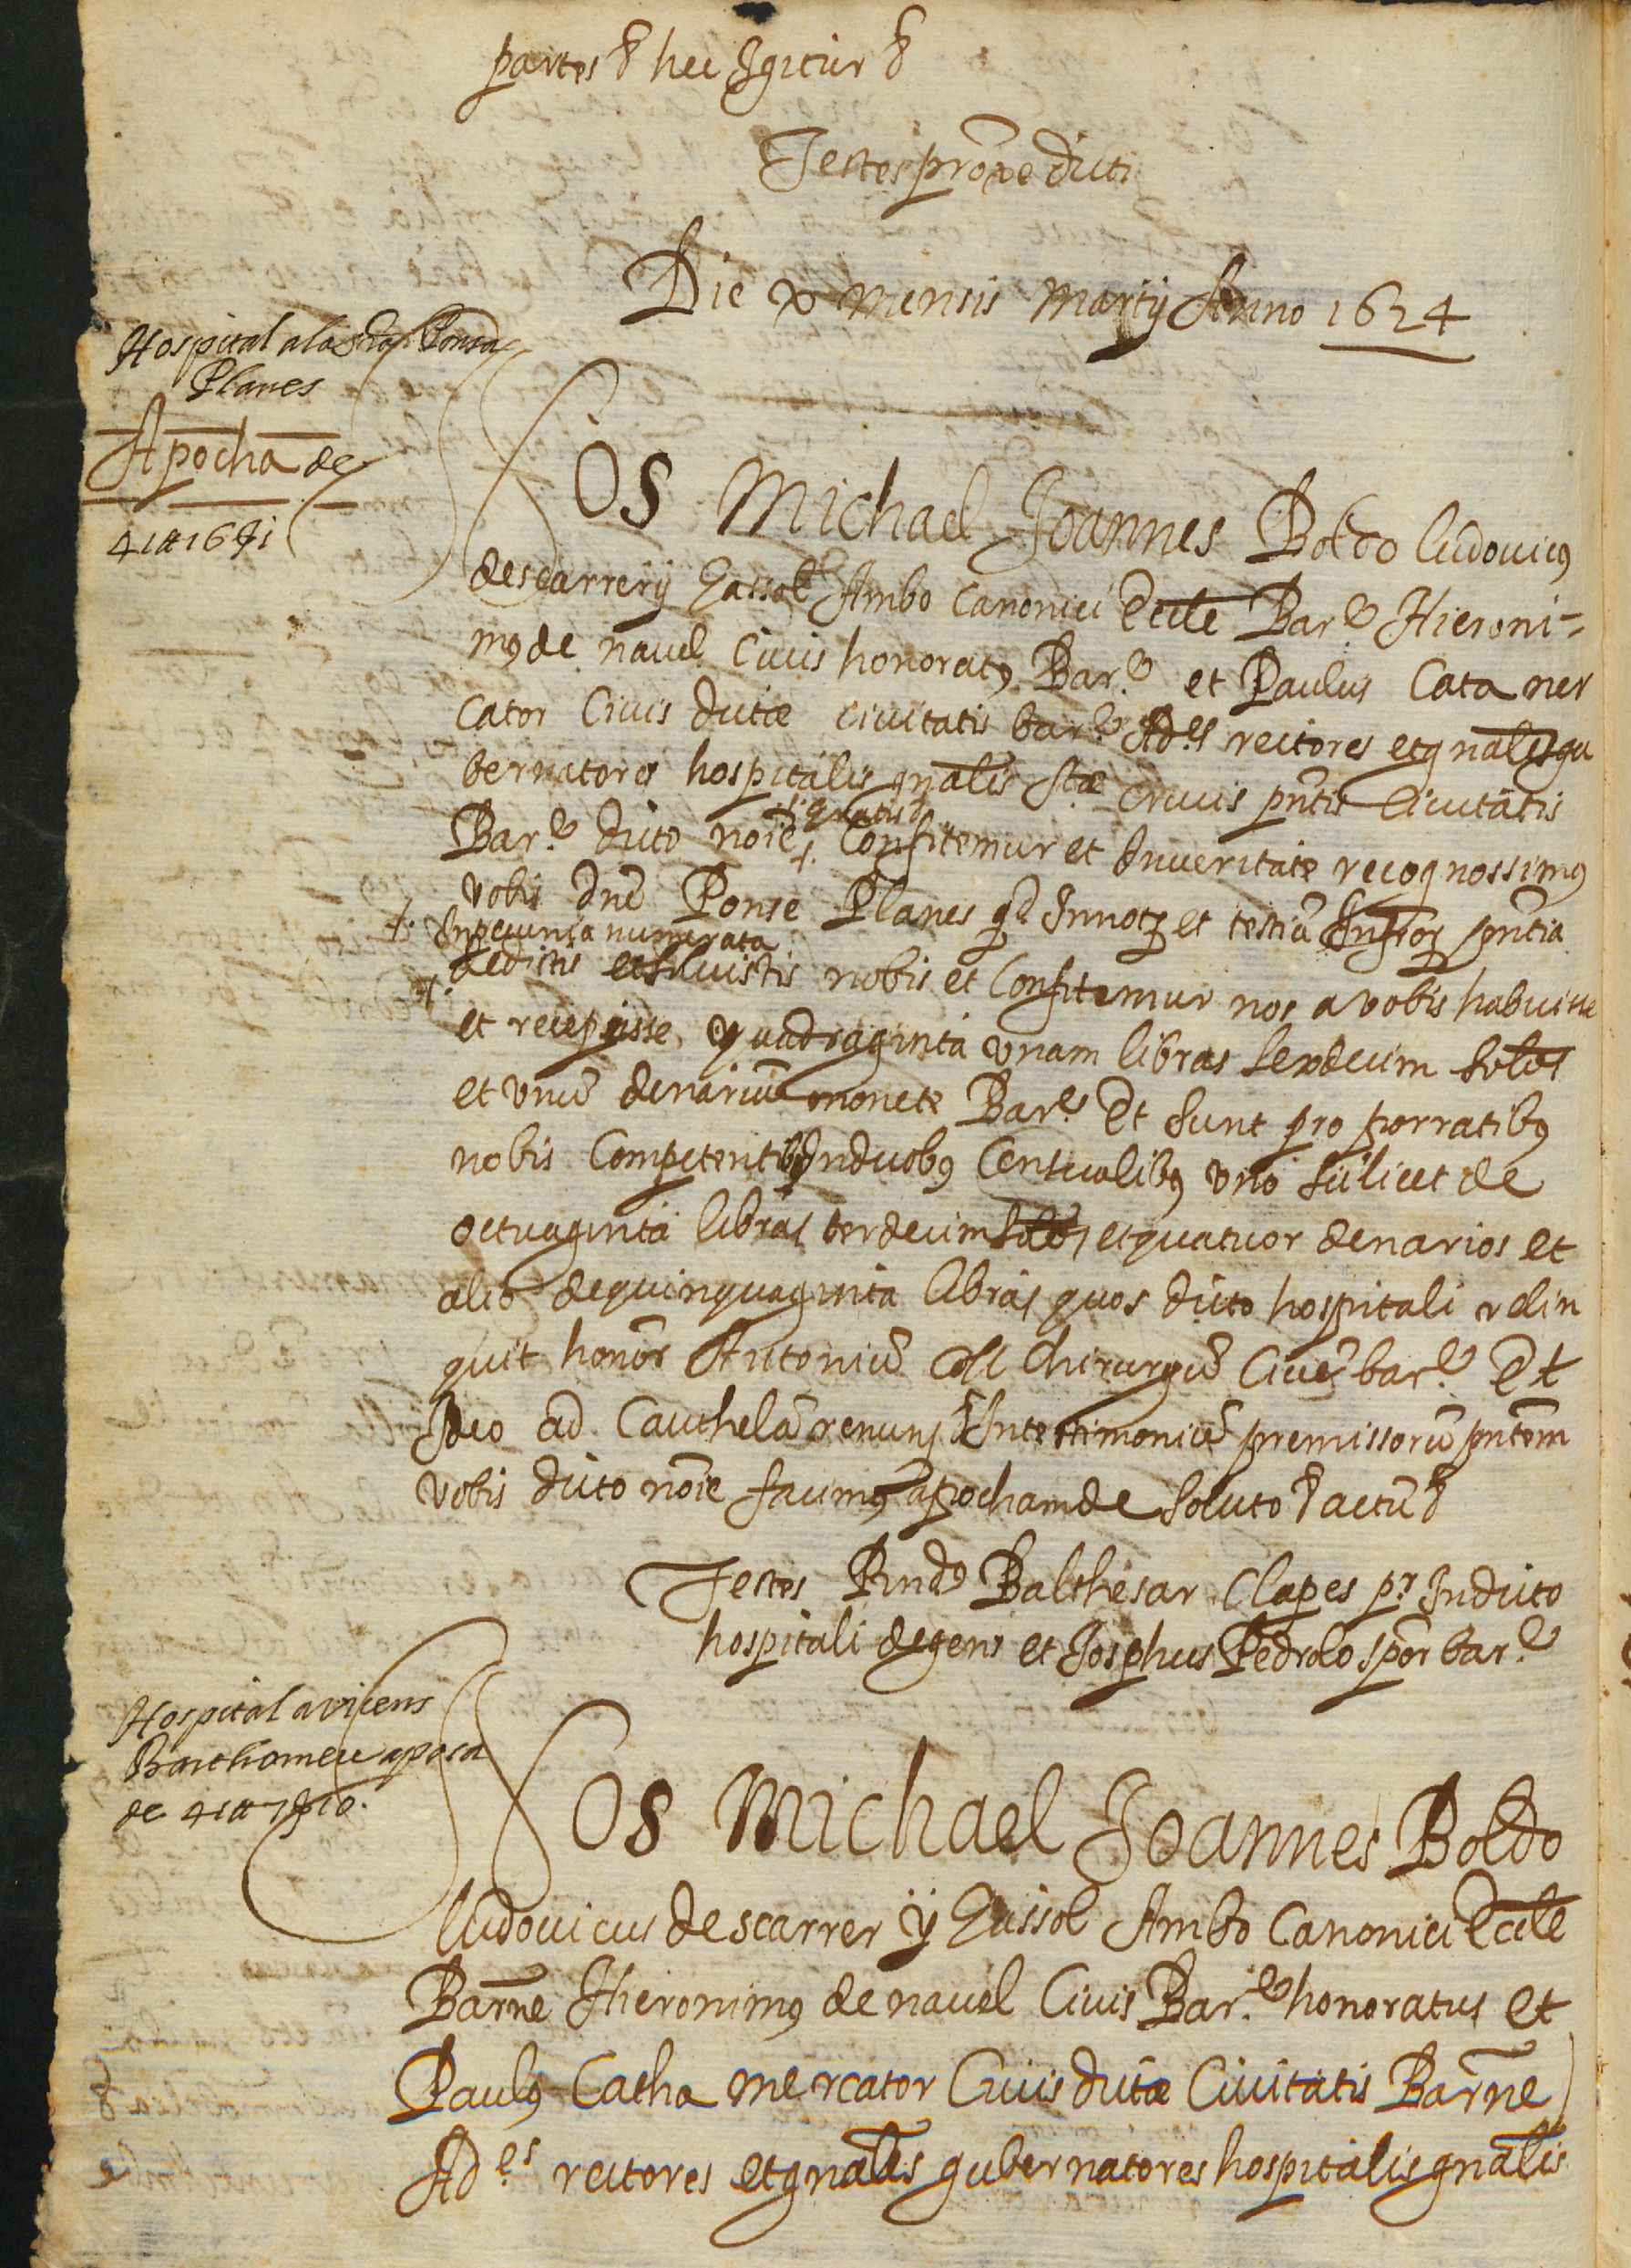 partes & hec Igitur &
Testes proxe dicti
Die x mensis Martij Anno 1624
Hospital a la Sra Ponsa
Planes
Apocha de
41 ll 16 s 1
Nos Michael Joannes Boldo ludouicus
descarrerij Gassol Ambo Canonici Eccle Bare Hieroni-
mus de nauel Ciuis honoratus Bare et Paulus Cata mer
cator Ciuis dictæ ciuitatis bare Ades rectores et gnales gu
bernatores hospitalis gnalis stæ crucis pntis Ciuitatis
Bare dicto noie gratis & Confitemur et Inveritate recognossimus
vobis dne Ponse Planes qd In notz et testiu Infror pntia
In pecunia numerata
dedistis et soluistis nobis et Confitemur nos a vobis habuisse
et recepisse, quadraginta vnam libras sexdecim solos
et vnu denariu monete Bare Et sunt pro porratibus
nobis Competentibus In duobus Censualibus vno silicet de
octuaginta libras terdecim solos, et quatuor denarios et
alio de quinquaginta libras quos dicto hospitali relin
quit honor Antoniu Coll Chirurgu Ciue bare Et
Ideo ad Cauthela renuns & In testimoniu premissoru pntem
vobis dicto noie facimus apocham de soluto & actu &
Testes Rndus Balthesar Clapes pr In dicto
hospitali degens et Josephus Pedrolo spor bare
Hospital a vicens
Barthomeu aposa
de 41 ll 7 s 10.
Nos Michael Joannes Boldo
ludouicus de scarrer ij Gassol Ambo Canonici Eccle
Barne Hieronimus de nauel Ciuis Bare honoratus et
Paulus Catha mercator Ciuis dictæ Ciuitatis Barne
Ades rectores et gnales gubernatores hospitalis gnalis